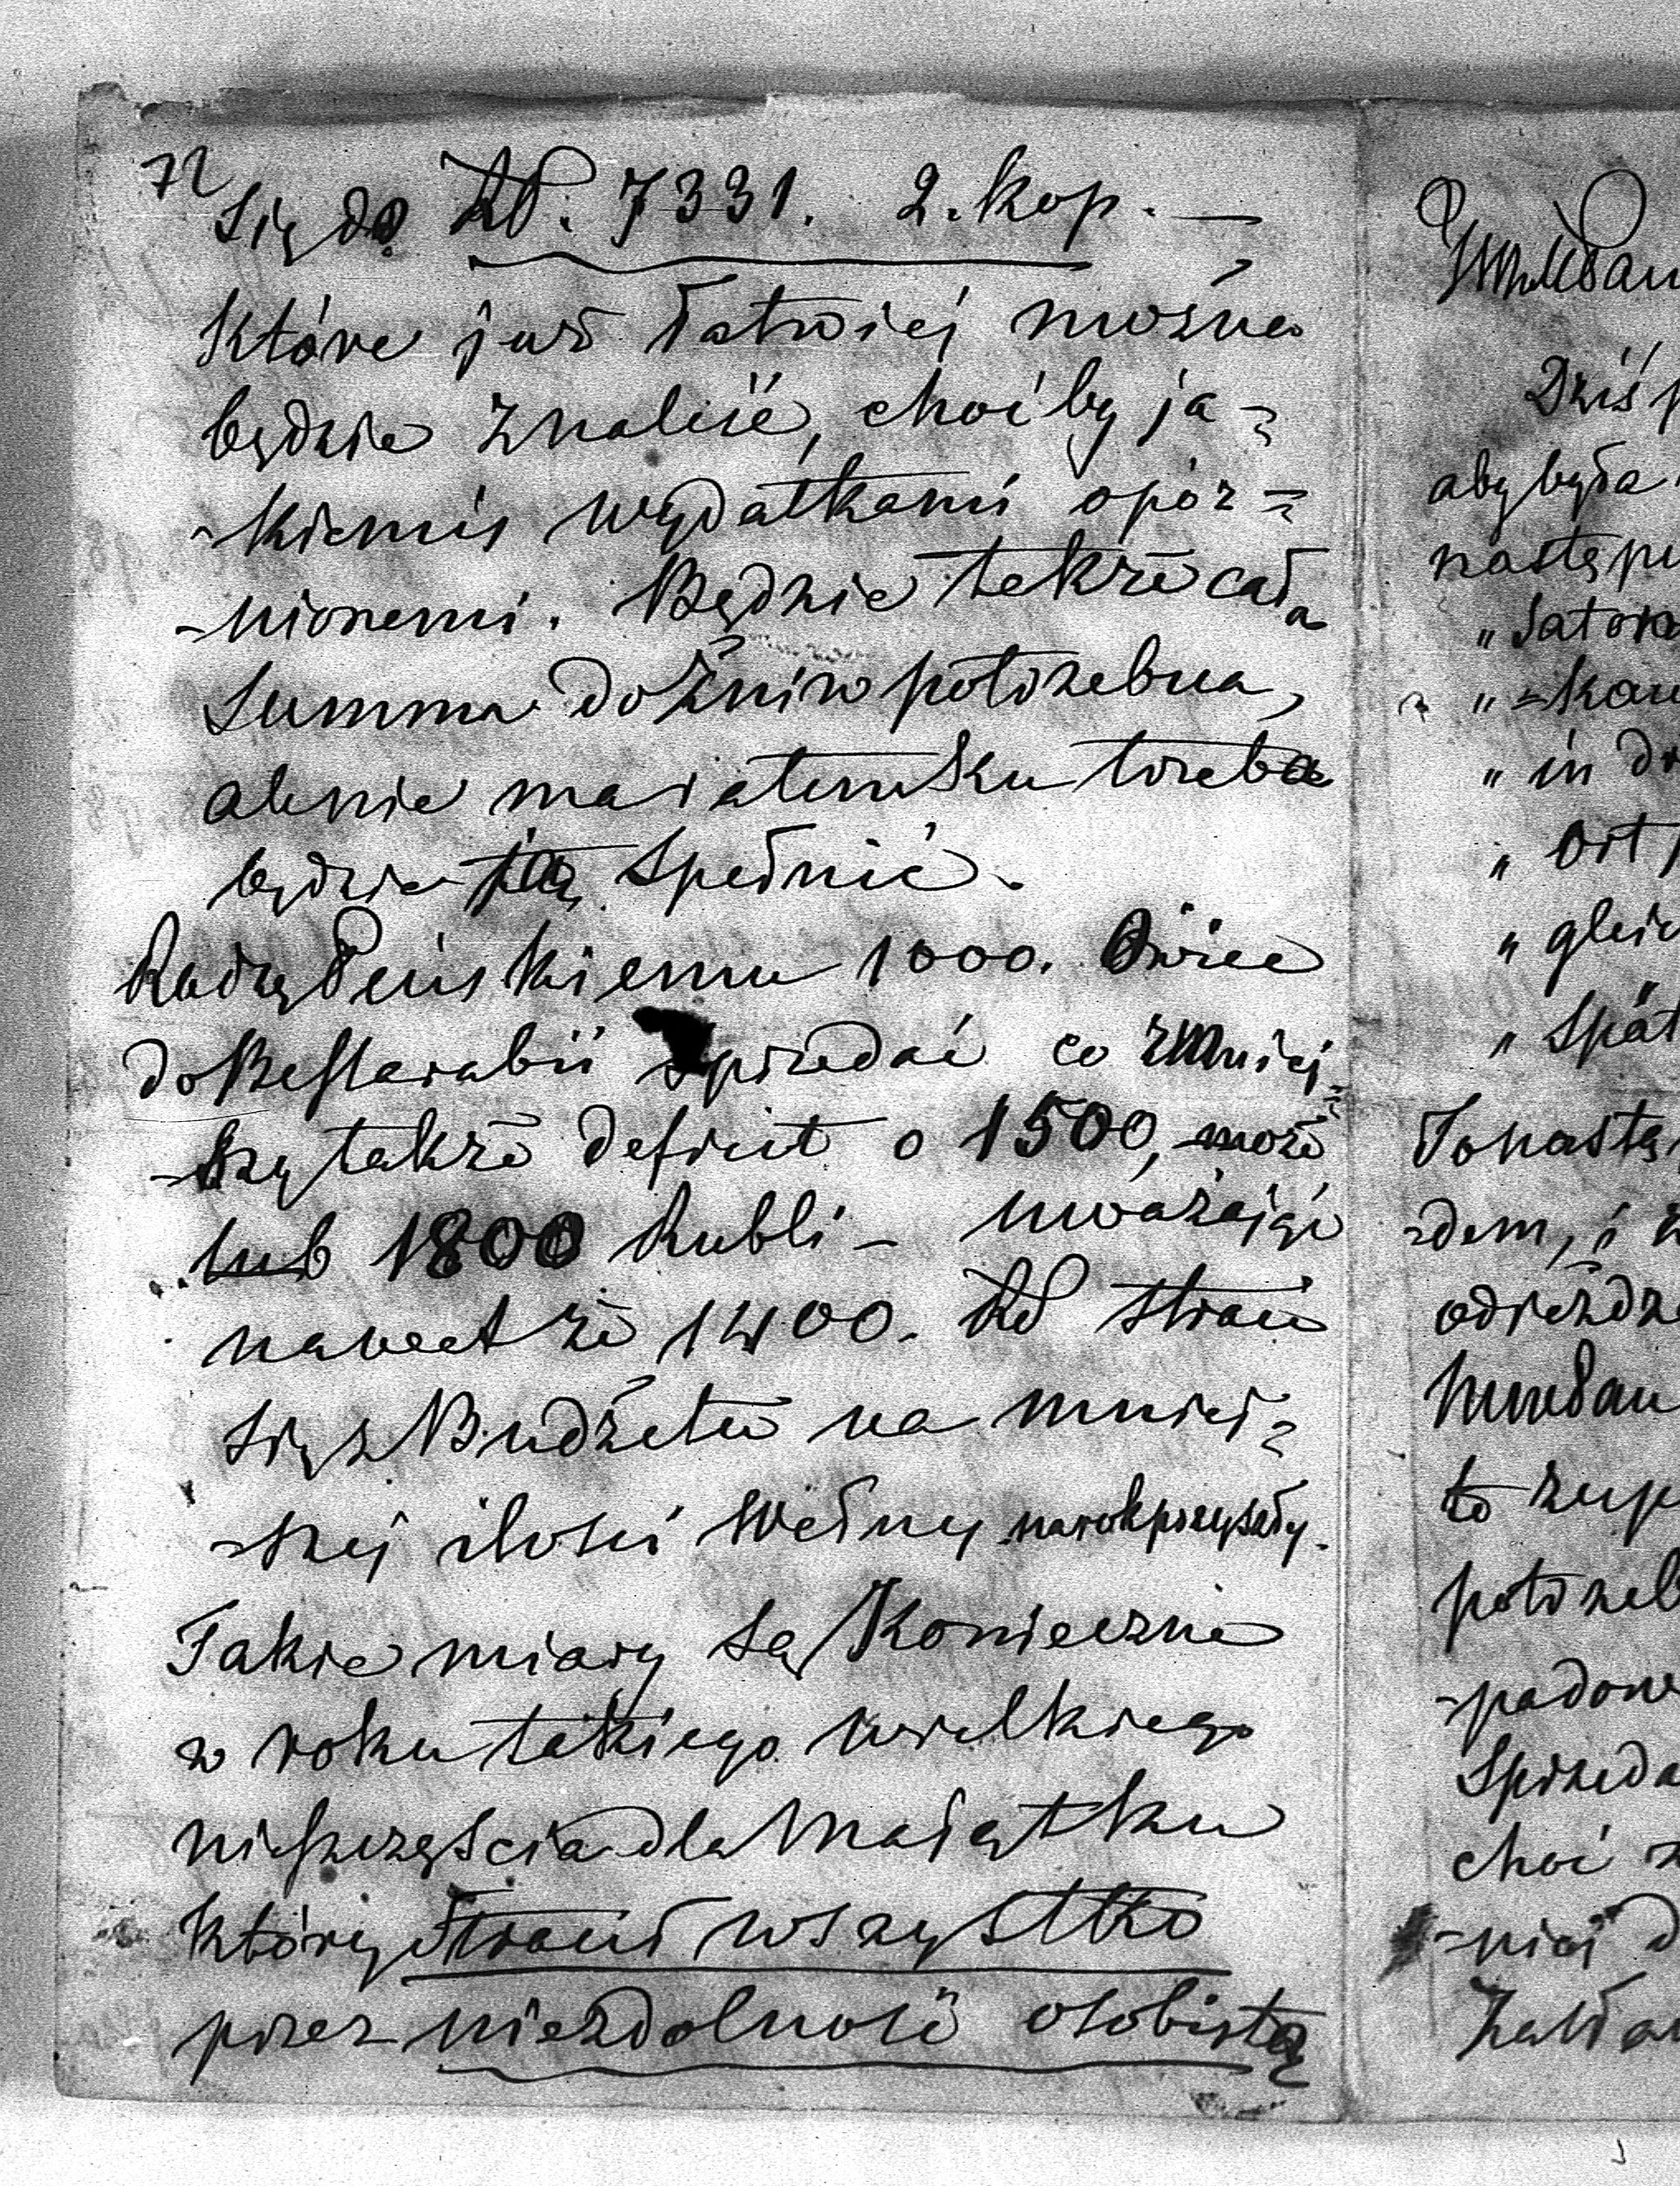 72
się do Rb. 7331. 2. kop. —
które już łatwiej można
będzie znaleść, choćby ja=
-kiemiś wydatkami opóź=
-nionemi. Będzie także cała
Summa do Żniw potrzebna,
ale nie ma ratunku trzeba
będzie ją spełnić.
Radzę Peńskiemu 1000. Owiec
do Bessarabii sprzedać co zmniej=
-szy także deficit o 1500, może
lub 1800 Rubli – uważając
nawet że 1400. Rb straci
się z Budżetu na mniej=
-szej ilości Wełny na rok przyszły.
Takie miary są Konieczne
w roku takiego wielkiego
nieszczęścia dla Majątku
który stracił wszystko
przez niezdolność osobistą
Dziś
aby była
następu
"
"
" in
" Ort
"
" Spät
-dem, i
to zup
potrzeb
Sprzeda
choć
-niej